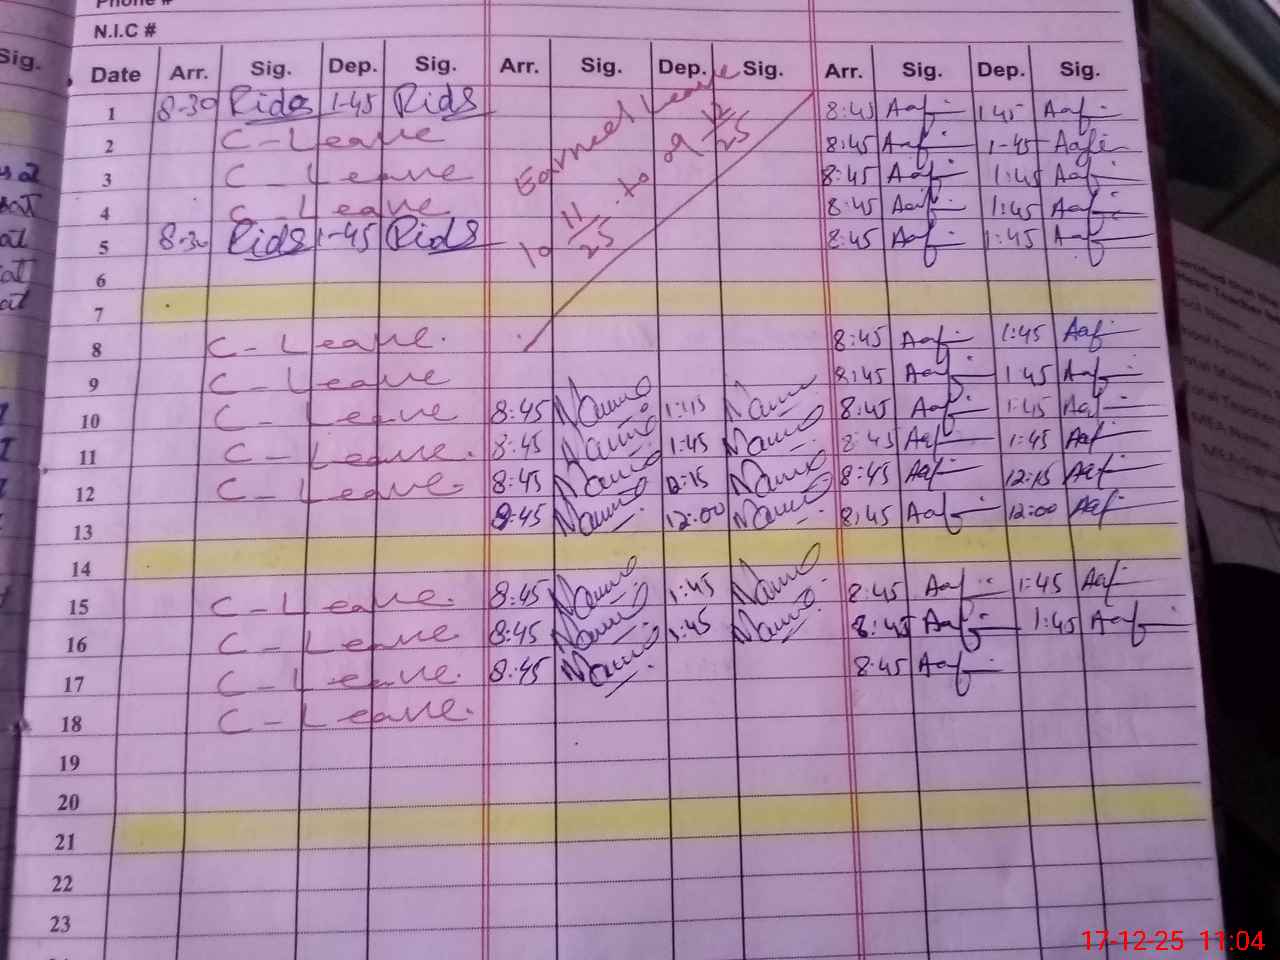 Phone #
N.I.C #
Sig.
Date Arr. Sig. Dep. Sig. Arr. Sig. Dep. Sig. Arr. Sig. Dep. Sig.
1 8-30 Rida 1-45 Rida 8:45 Aafi 1:45 Aafi
2 C-Leave 8:45 Aafi 1-45 Aafi
3 C-Leave 8:45 Aafi 1:45 Aafi
4 C-Leave 8:45 Aafi 1:45 Aafi
5 8-30 Rida 1-45 Rida 8:45 Aafi 1:45 Aafi
Earned Leave
10 11/25 to 09 12/25
6
7
8 C-Leave. 8:45 Aafi 1:45 Aafi
9 C-Leave 8:45 Aafi 1:45 Aafi
10 C-Leave 8:45 1:15 8:45 Aafi 1:45 Aafi
11 C-Leave. 8:45 1:45 8:45 Aafi 1:45 Aafi
12 C-Leave. 8:45 12:15 8:45 Aafi 12:15 Aafi
13 8:45 12:00 8:45 Aafi 12:00 Aafi
14
15 C-Leave. 8:45 1:45 8:45 Aafi 1:45 Aafi
16 C-Leave. 8:45 1:45 8:45 Aafi 1:45 Aafi
17 C-Leave. 8:45 8:45 Aafi
18 C-Leave.
19
20
21
22
23
17-12-25 11:04